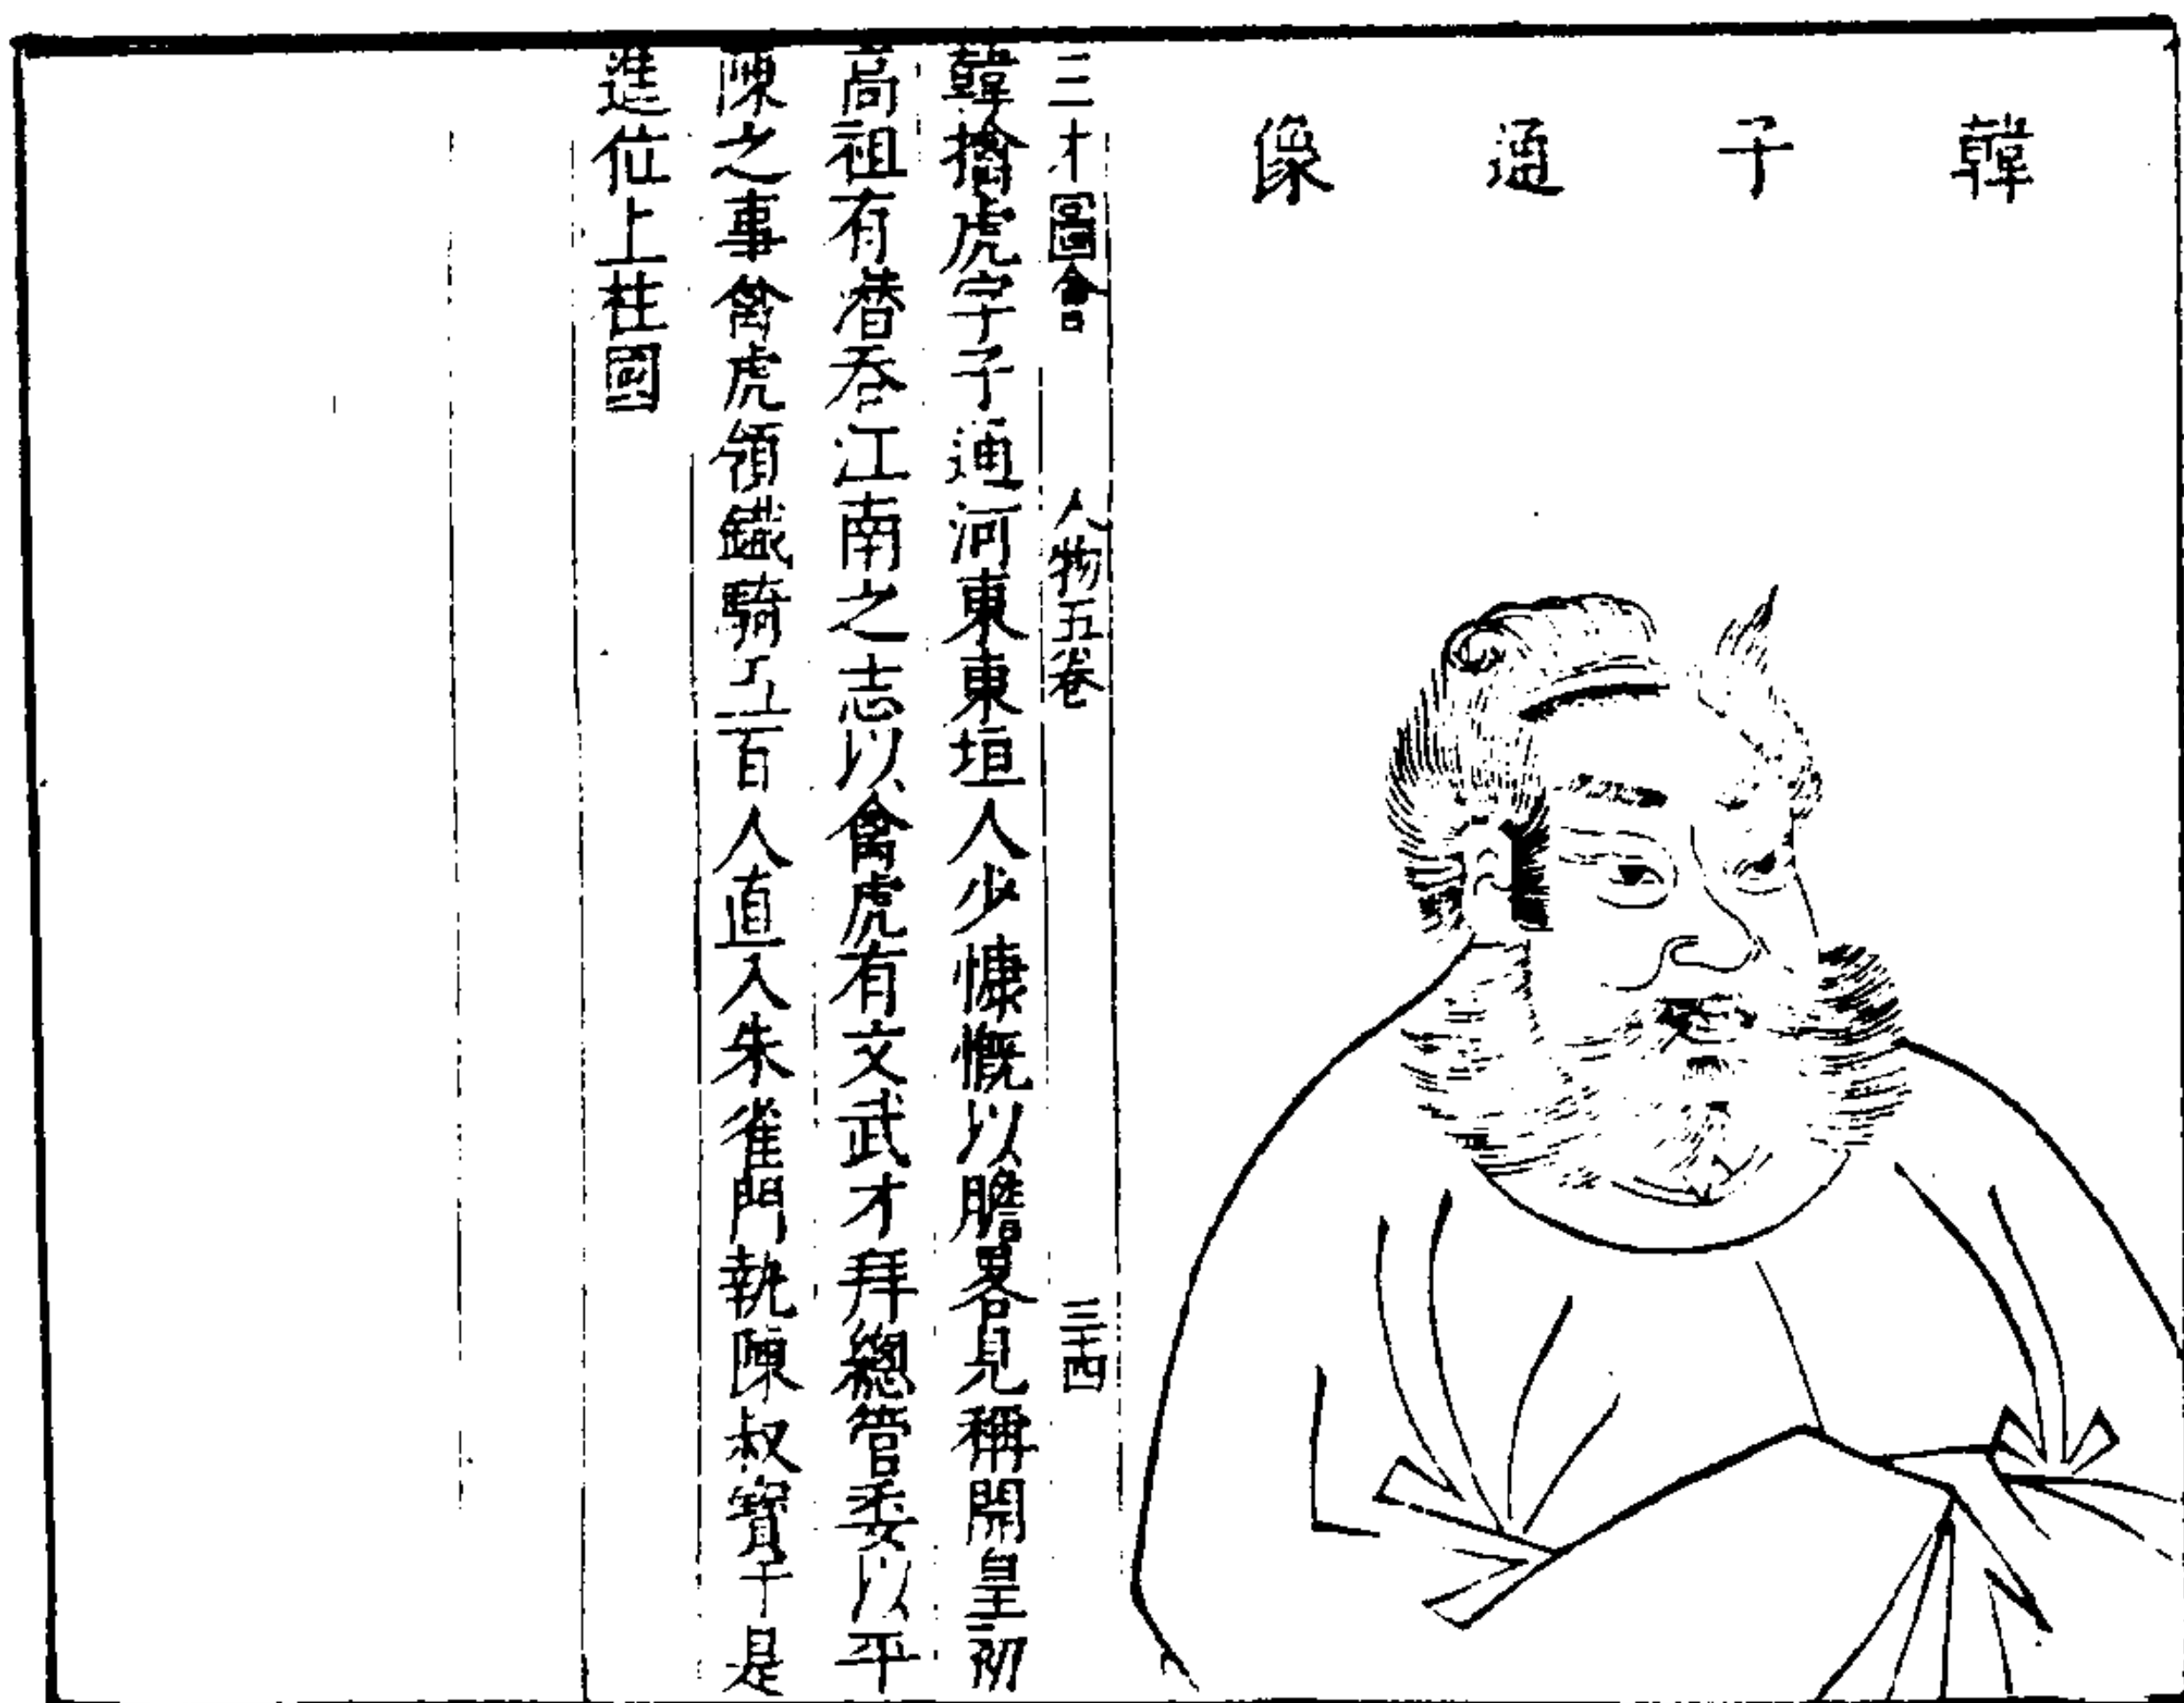 韓子通像
三才圖會 人物五卷 三十四
韓擒虎字子通河東東垣人少慷慨以膽畧見稱開皇初
高祖有潛吞江南之志以禽虎有文武才拜總管委以平
陳之事禽虎領鐵騎五百人直入朱雀門執陳叔寶于是
進位上柱國